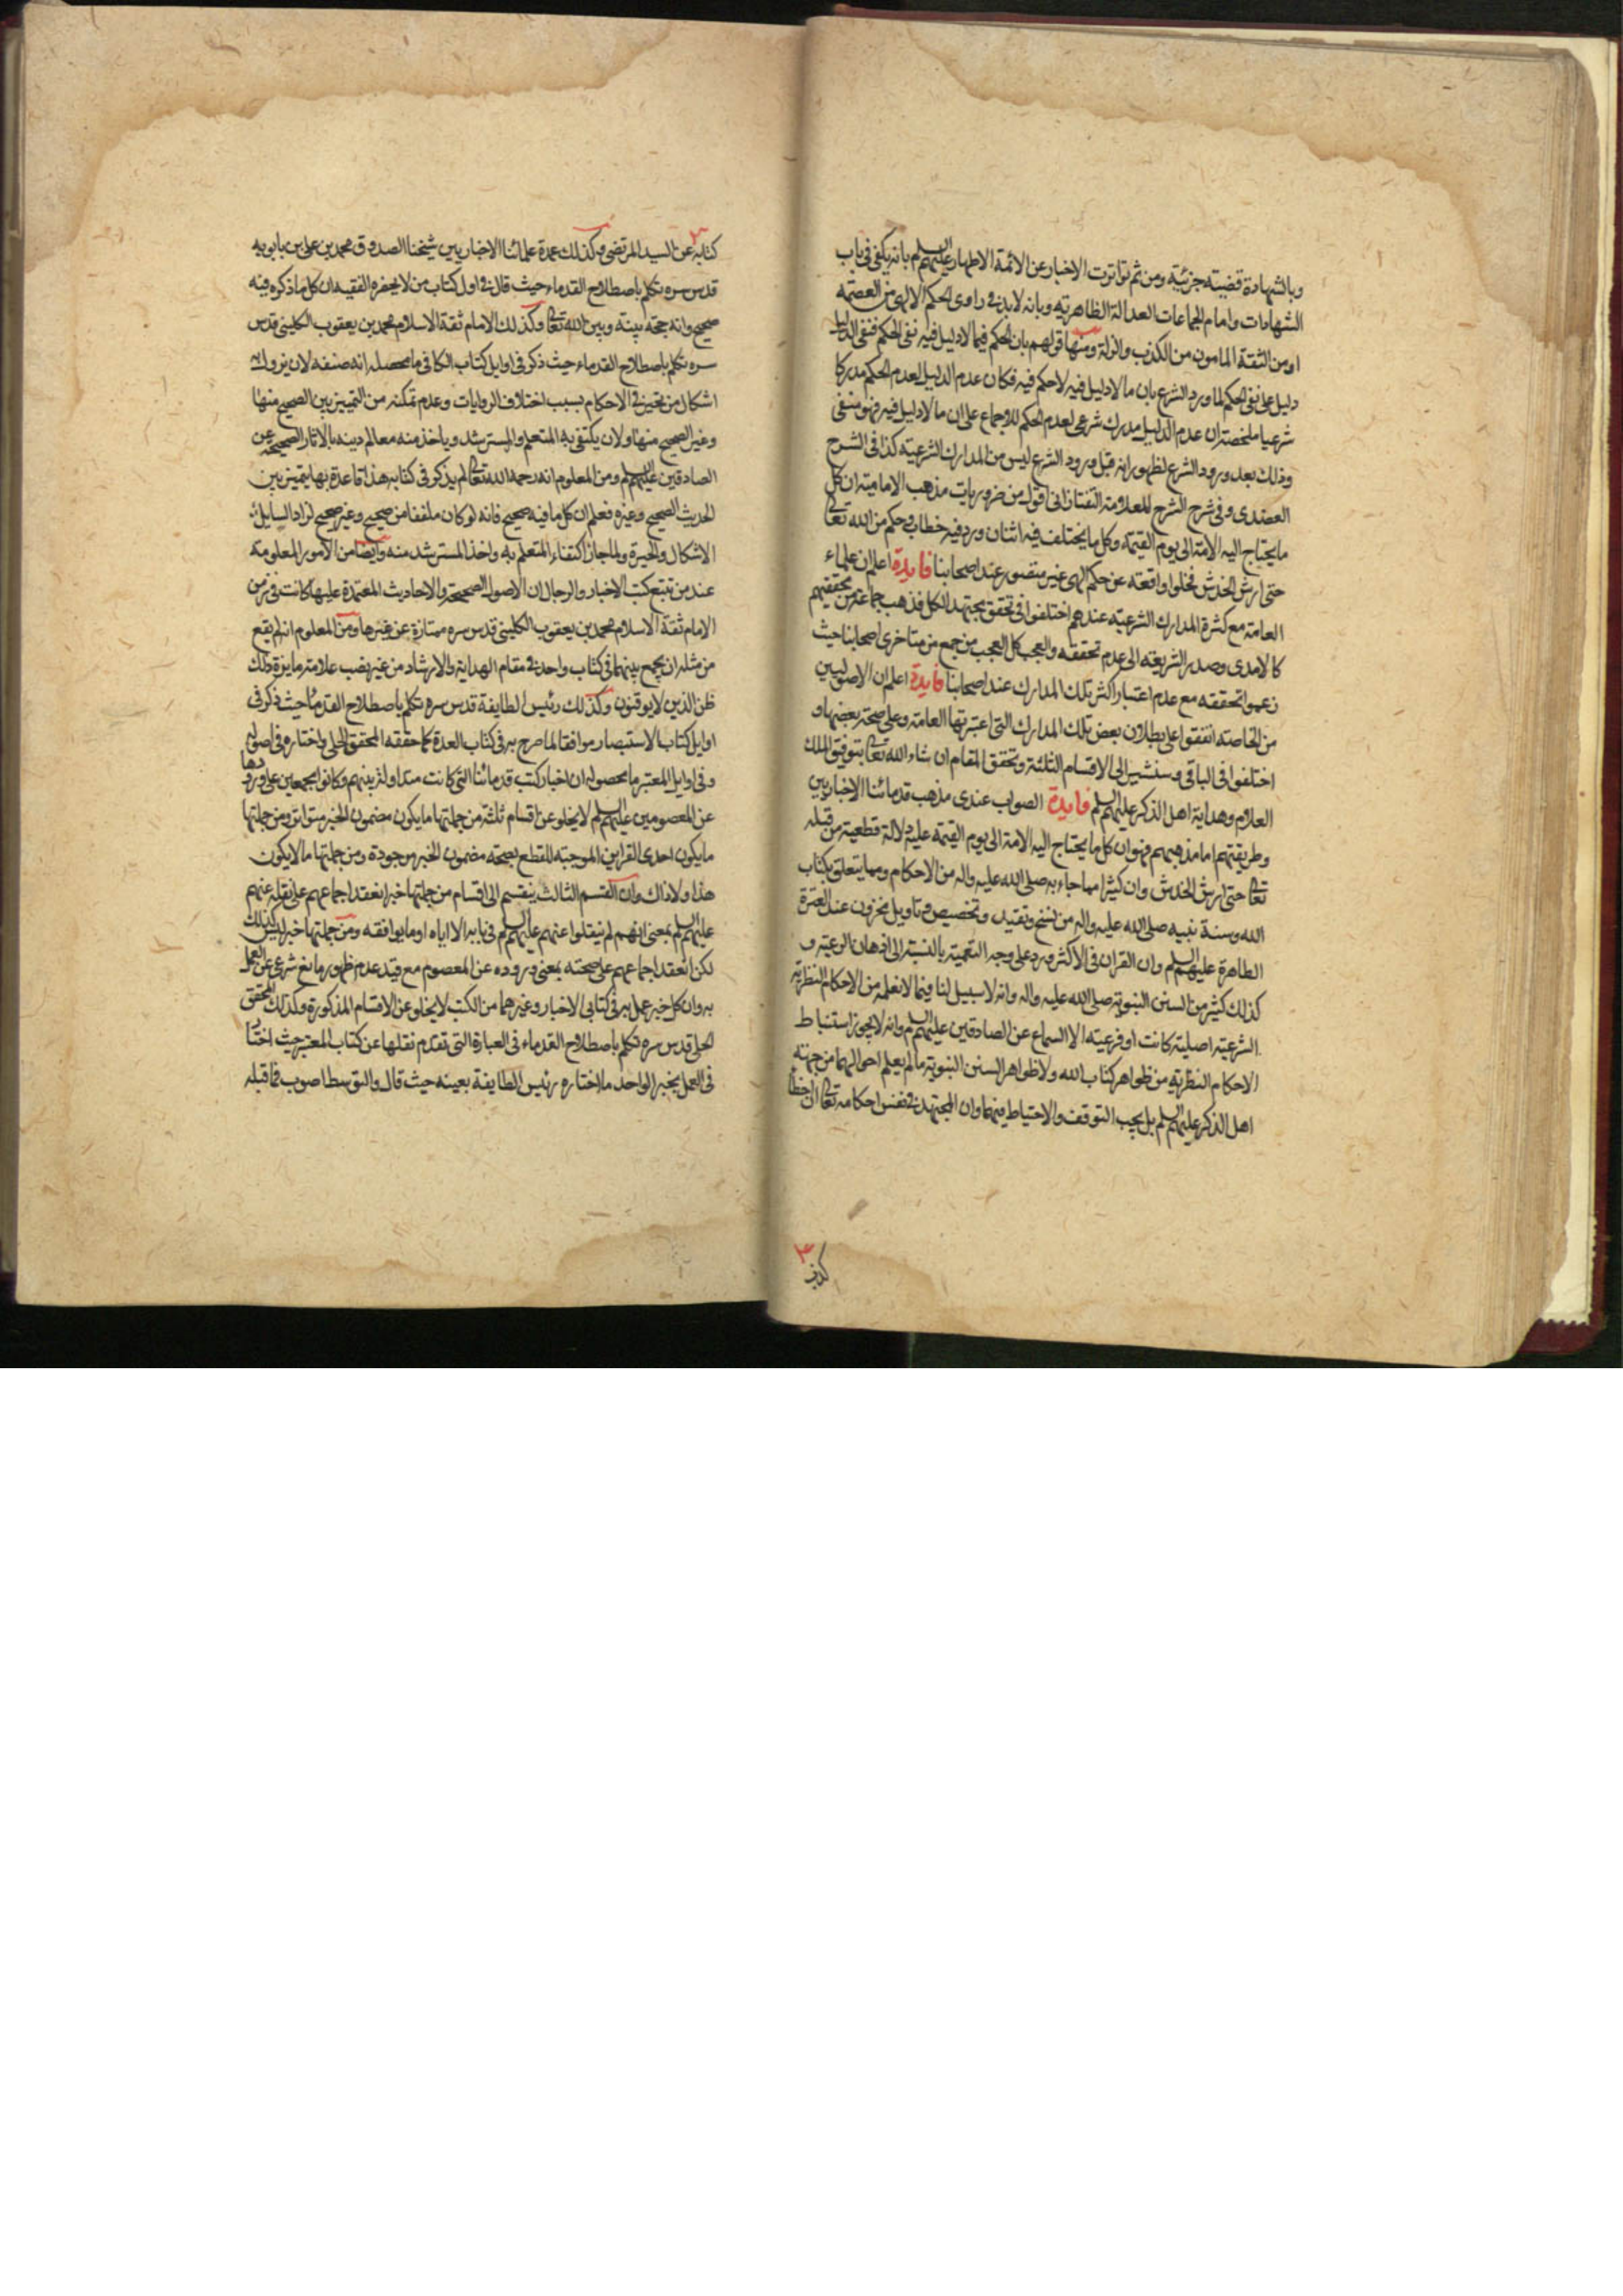 وبالشهادة قضية جزئية ومن ثم تواترت الاخبار عن الائمة الاطهار عليهم السلم بانه يكفى فى باب
الشهادات وامام الجماعات العدالة الظاهرية وبانه لابد فى راوى الحكم الالهى من العصمة
او من الثقة المامون من الكذب والزلة ومنها قولهم بان الحكم فيما لا دليل فيه نفى الحكم فنفى الدليل
دليل على نفى الحكم لما ورد الشرع بان ما لا دليل فيه لا حكم فيه فكان عدم الدليل لعدم الحكم مدركا
شرعيا ملخصه ان عدم الدليل مدرك شرعى لعدم الحكم للاجماع على ان ما لا دليل فيه فهو منفى
وذلك بعد ورود الشرع لظهور انه قبل ورود الشرع ليس من المدارك الشرعية كذا فى الشرح
العضدى وفى شرح الشرح للعلامة التفتازانى اقول من ضروريات مذهب الامامية ان كل
ما يحتاج اليه الامة الى يوم القيمة وكل ما يختلف فيه اثنان ورد فيه خطاب وحكم من الله تعالى
حتى ارش الخدش فخلو واقعة عن حكم الهى غير متصور عند اصحابنا فايدة اعلم ان علماء
العامة مع كثرة المدارك الشرعية عندهم اختلفوا فى تحقق مجتهد الكل فذهب جماعة من محققيهم
كالامدى وصدر الشريعة الى عدم تحققه والعجب كل العجب من جمع من متاخرى اصحابنا حيث
زعموا تحققه مع عدم اعتبار اكثر تلك المدارك عند اصحابنا فايدة اعلم ان الاصوليين
من الخاصة اتفقوا على بطلان بعض تلك المدارك التى اعتبرتها العامة وعلى صحة بعضها و
اختلفوا فى الباقى وسنشير الى الاقسام الثلثة وتحقق المقام ان شاء الله تعالى بتوفيق الملك
العلام وهداية اهل الذكر عليهم السلم فايدة الصواب عندى مذهب قدمائنا الاخباريين
وطريقتهم اما مذهبهم فهو ان كل ما يحتاج اليه الامة الى يوم القيمة عليه دلالة قطعية من قبله
تعالى حتى ارش الخدش وان كثيرا مما جاء به صلى الله عليه واله من الاحكام ومما يتعلق بكتاب
الله وسنة نبيه صلى الله عليه واله من نسخ وتقييد وتخصيص وتاويل مخزون عند العترة
الطاهرة عليهم السلم وان القران فى الاكثر ورد على وجه التعمية بالنسبة الى اذهان الرعية و
كذلك كثير من السنن النبوية صلى الله عليه واله وانه لا سبيل لنا فيما لا نعلمه من الاحكام النظرية
الشرعية اصلية كانت او فرعية الا السماع عن الصادقين عليهم السلم وانه لا يجوز استنباط
الاحكام النظرية من ظواهر كتاب الله ولا ظواهر السنن النبوية ما لم يعلم احوالهما من جهة
اهل الذكر عليهم السلم بل يجب التوقف والاحتياط فيهما وان المجتهد فى نفس احكامه تعالى ان اخطأ
كتابه عن السيد المرتضى وكذلك عمدة علمائنا الاخباريين شيخنا الصدوق محمد بن على بن بابويه
قدس سره تكلم باصطلاح القدماء حيث قال فى اول كتاب من لا يحضره الفقيه ان كل ما ذكره فيه
صحيح وانه حجة بينه وبين الله تعالى وكذلك الامام ثقة الاسلام محمد بن يعقوب الكلينى قدس
سره تكلم باصطلاح القدماء حيث ذكر فى اوايل كتاب الكافى ما محصله انه صنفه لان يزول به
اشكال من تحير فى الاحكام بسبب اختلاف الروايات وعدم تمكنه من التمييز بين الصحيح منها
وغير الصحيح منها ولان يكتفى به المتعلم والمسترشد وياخذ منه معالم دينه بالاثار الصحيحة عن
الصادقين عليهم السلم ومن المعلوم انه رحمه الله تعالى لم يذكر فى كتابه هذا قاعدة بها يتميز بين
الحديث الصحيح وغيره فعلم ان كل ما فيه صحيح فانه لو كان ملفقا من صحيح وغير صحيح لزاد السايل
الاشكال والحيرة ولما جاز اكتفاء المتعلم به واخذ المسترشد منه وايضا من الامور المعلومة
عند من تتبع كتب الاخبار والرجال ان الاصول الصحيحة والاحاديث المعتمدة عليها كانت فى زمن
الامام ثقة الاسلام محمد بن يعقوب الكلينى قدس سره ممتازة عن غيرها ومن المعلوم انه لم يقع
من مثله ان يجمع بينهما فى كتاب واحد فى مقام الهداية والارشاد من غير نصب علامة مايزة ذلك
ظن الذين لا يوقنون وكذلك رئيس الطايفة قدس سره تكلم باصطلاح القدماء حيث ذكر فى
اوايل كتاب الاستبصار موافقا لما صرح به فى كتاب العدة كما حققه المحقق الحلى واختاره فى اصوله
وفى اوايل المعتبر ما محصوله ان اخبار كتب قدمائنا التى كانت متداولة بينهم وكانوا مجمعين على ورودها
عن المعصومين عليهم السلم لا يخلو عن اقسام ثلثة من جملتها ما يكون مضمون الخبر متواترا ومن جملتها
ما يكون احدى القراين الموجبة للقطع بصحة مضمون الخبر موجودة ومن جملتها ما لا يكون
هذا ولا ذاك وان القسم الثالث ينقسم الى اقسام من جملتها خبر انعقد اجماعهم على نقله عنهم
عليهم السلم بمعنى انهم لم ينقلوا عنهم عليهم السلم فى بابه الا اياه او ما يوافقه ومن جملتها خبر ليس كذلك
لكن انعقد اجماعهم على صحته بمعنى وروده عن المعصوم مع قيد عدم ظهور مانع شرعى عن العمل
به وان كل خبر عمل به فى كتابى الاخبار وغيرهما من الكتب لا يخلو عن الاقسام المذكورة وكذلك المحقق
الحلى قدس سره تكلم باصطلاح القدماء فى العبارة التى تقدم نقلها عن كتاب المعتبر حيث اختار
فى العمل بخبر الواحد ما اختاره رئيس الطايفة بعينه حيث قال والتوسط اصوب فما قبله